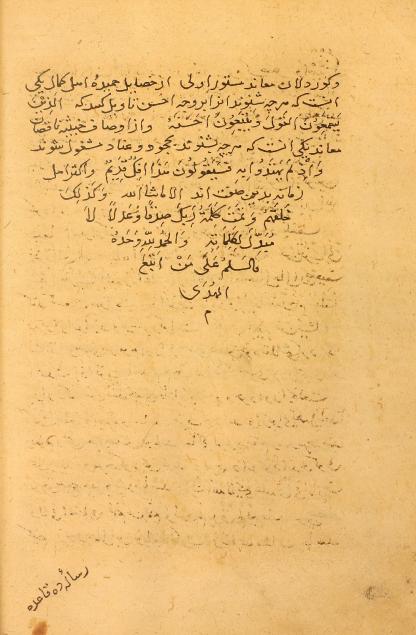 و کوردلان معاند مستور اولی از خصایل حمیده اهل کمال یکی
انست که هرچه شنوند انرا بر وجه احسن تاویل کنند که الذین
یستمعون القول و یتبعون احسنه و از اوصاف خبیثه ناقصان
معاند یکی انست که هرچه شنوند بجحود و عناد مشغول شوند
و اذ لم یهتدوا به فسیقولون هذا افک قدیم و اکثر اهل
زمانه بدین صفت اند الا ماشاالله و کذلک
خلقهم و تمت کلمة ربک صدقا و عدلا لا
مبدل لکلماته والحمد لله وحده
والسلم علی من اتبع
الهدی
م
رساله ده قاعده